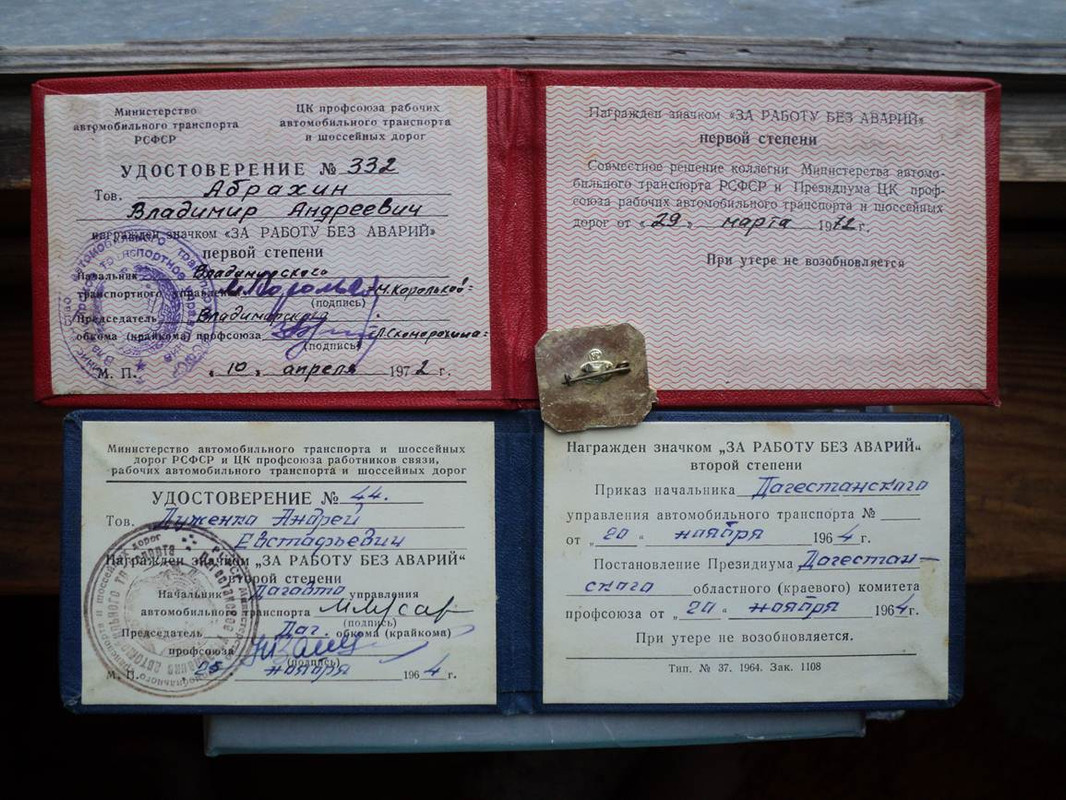 Министерство
автомобильного транспорта
РСФСР
ЦК профсоюза рабочих
автомобильного транспорта
и шоссейных дорог
УДОСТОВЕРЕНИЕ № 332
Тов. Абрахин
Владимир Андреевич
награжден значком «ЗА РАБОТУ БЕЗ АВАРИЙ»
первой степени
Начальник Владимирского
транспортного управления
(подпись)
Председатель Владимирского
обкома (крайкома) профсоюза
(подпись)
М. П. „10„ апреля 1972 г.
Награжден значком «ЗА РАБОТУ БЕЗ АВАРИЙ»
первой степени
Совместное решение коллегии Министерства автомо-
бильного транспорта РСФСР и Президиума ЦК проф-
союза рабочих автомобильного транспорта и шоссейных
дорог от «29» марта 1972 г.
При утере не возобновляется
Министерство автомобильного транспорта и шоссейных
дорог РСФСР и ЦК профсоюза работников связи,
рабочих автомобильного транспорта и шоссейных дорог
УДОСТОВЕРЕНИЕ № 44.
Тов. Луженко Андрей
Евстафьевич
Награжден значком „ЗА РАБОТУ БЕЗ АВАРИЙ“
второй степени
Начальник Дагавто управления
автомобильного транспорта
(подпись)
Председатель Даг. обкома (крайкома)
профсоюза
(подпись)
М. П. 25 ноября 1964 г.
Награжден значком „ЗА РАБОТУ БЕЗ АВАРИЙ“
второй степени
Приказ начальника Дагестанского
управления автомобильного транспорта №
от „20“ ноября 1964 г.
Постановление Президиума Дагестан-
ского областного (краевого) комитета
профсоюза от „20“ ноября 1964 г.
При утере не возобновляется.
Тип. № 37. 1964. Зак. 1108